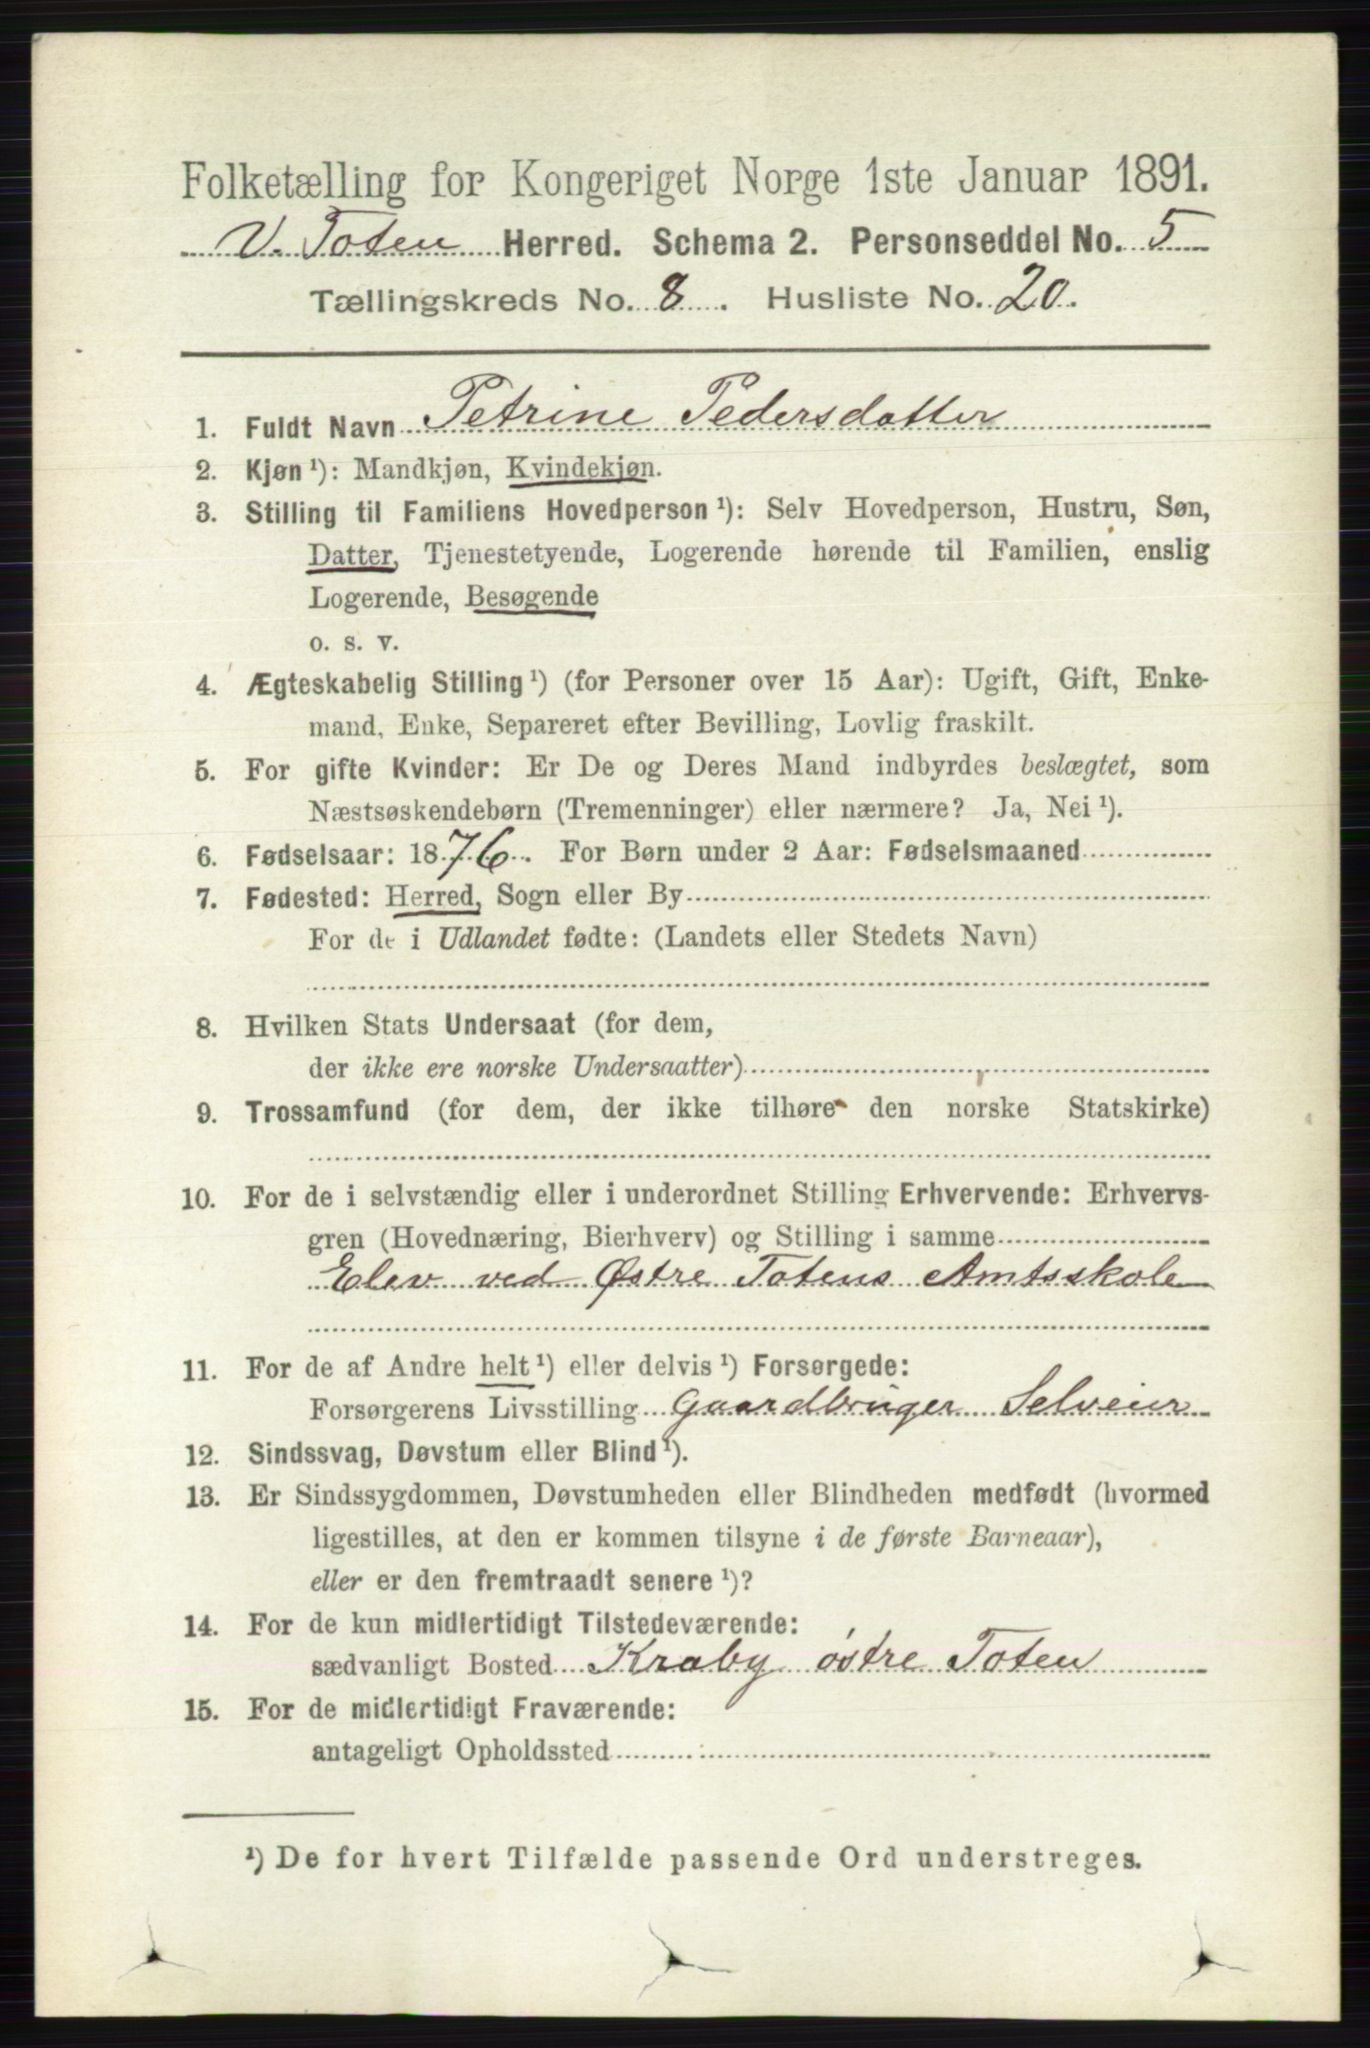 Folketælling for Kongeriget Norge 1ste Januar 1891.
V. Toten Herred. Schema 2. Personseddel No. 5
Tællingskreds No. 8. Husliste No. 20.
1. Fuldt Navn Petrine Pedersdatter
2. Kjøn ¹): Mandkjøn, Kvindekjøn.
3. Stilling til Familiens Hovedperson ¹): Selv Hovedperson, Hustru, Søn,
Datter, Tjenestetyende, Logerende hørende til Familien, enslig
Logerende, Besøgende
o. s. v.
4. Ægteskabelig Stilling ¹) (for Personer over 15 Aar): Ugift, Gift, Enke-
mand, Enke, Separeret efter Bevilling, Lovlig fraskilt.
5. For gifte Kvinder: Er De og Deres Mand indbyrdes beslægtet, som
Næstsøskendebørn (Tremenninger) eller nærmere? Ja, Nei ¹).
6. Fødselsaar: 1876. For Børn under 2 Aar: Fødselsmaaned
7. Fødested: Herred, Sogn eller By
For de i Udlandet fødte: (Landets eller Stedets Navn)
8. Hvilken Stats Undersaat (for dem,
der ikke ere norske Undersaatter)
9. Trossamfund (for dem, der ikke tilhøre den norske Statskirke)
10. For de i selvstændig eller i underordnet Stilling Erhvervende: Erhvervs-
gren (Hovednæring, Bierhverv) og Stilling i samme
Elev ved Østre Totens Amtsskole
11. For de af Andre helt ¹) eller delvis ¹) Forsørgede:
Forsørgerens Livsstilling Gaardbruger Selveier
12. Sindssvag, Døvstum eller Blind ¹).
13. Er Sindssygdommen, Døvstumheden eller Blindheden medfødt (hvormed
ligestilles, at den er kommen tilsyne i de første Barneaar),
eller er den fremtraadt senere ¹)?
14. For de kun midlertidigt Tilstedeværende:
sædvanligt Bosted Kraby østre Toten
15. For de midlertidigt Fraværende:
antageligt Opholdssted
¹) De for hvert Tilfælde passende Ord understreges.